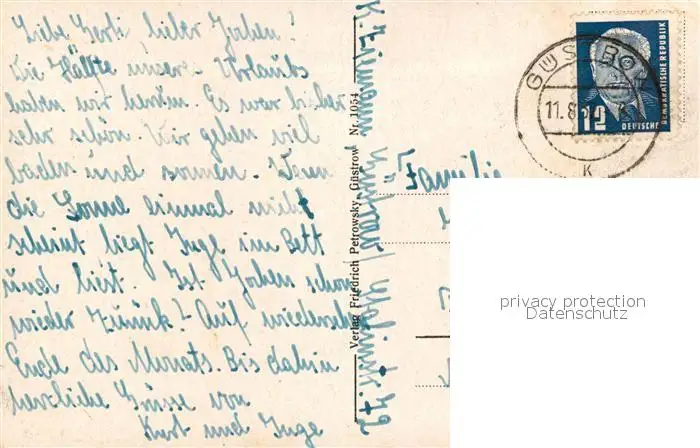 Liebe Gerti lieber Jochen!
Die Hälfte unseres Urlaubs
haben wir herum. Es war bisher
sehr schön. Wir gehen viel
baden und sonnen. Wenn
die Sonne einmal nicht
scheint liegt Inge im Bett
und liest. Ist Jochen schon
wieder zurück? Auf wiedersehn
Ende des Monats. Bis dahin
herzliche Grüsse von
Kurt und Inge
Verlag Friedrich Petrowsky, Güstrow Nr. 1054
GÜSTROW
11.8.
K
12
DEUTSCHE
DEMOKRATISCHE REPUBLIK
Familie
privacy protection
Datenschutz